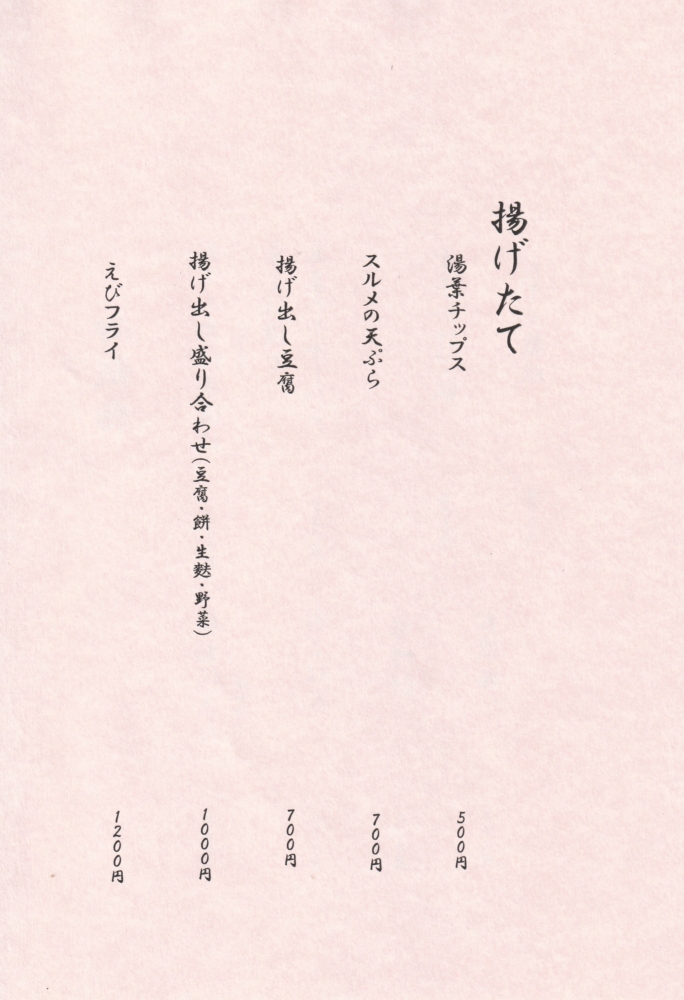 揚げたて
湯葉チップス 500円
スルメの天ぷら 700円
揚げ出し豆腐 700円
揚げ出し盛り合わせ(豆腐・餅・生麩・野菜) 1000円
えびフライ 1200円